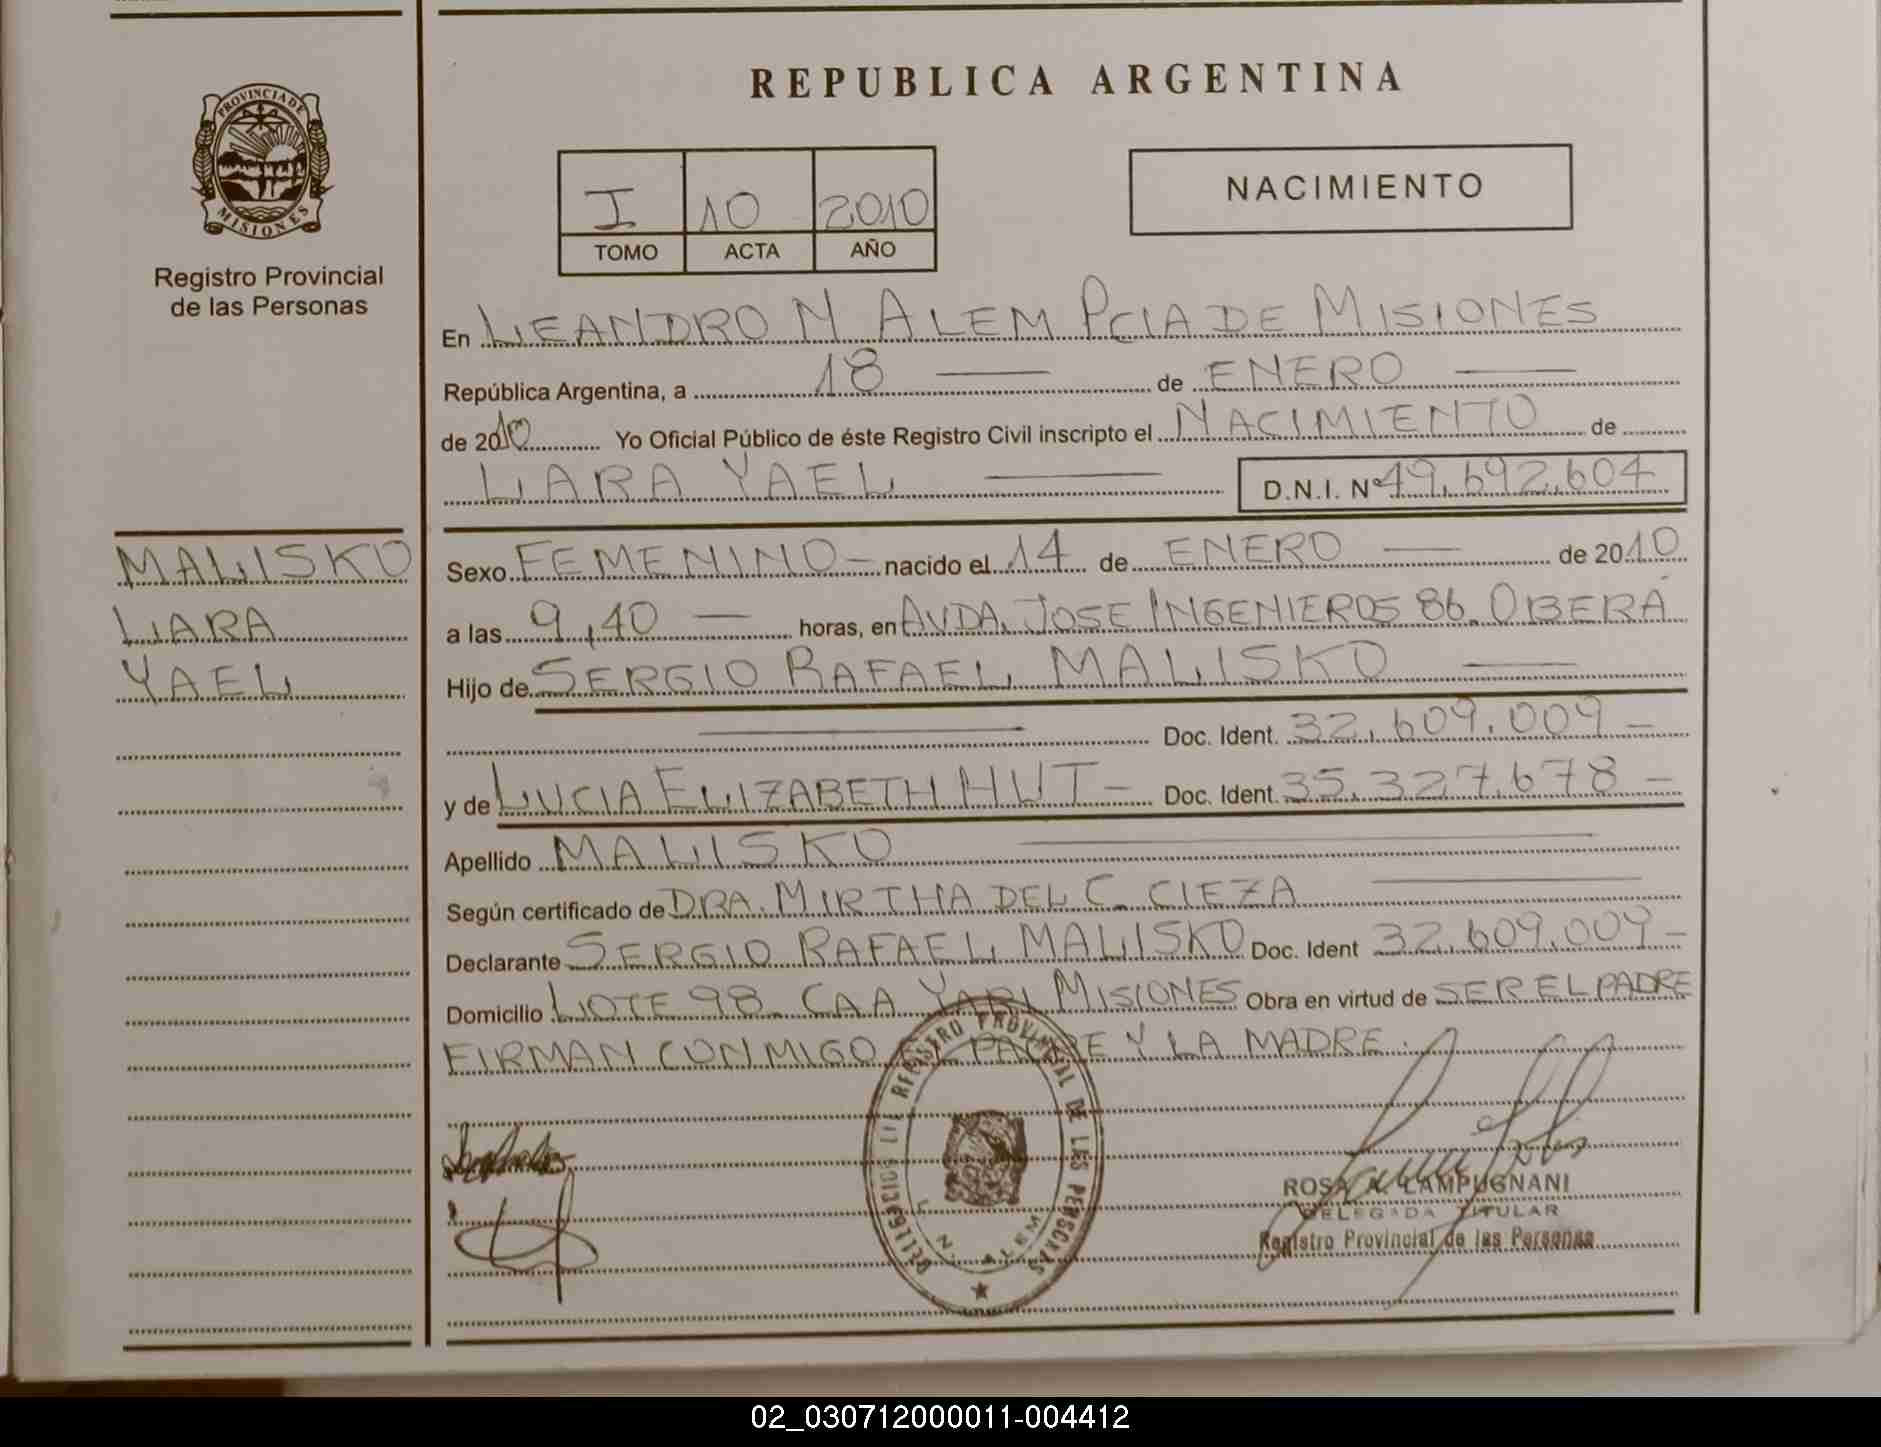 PROVINCIA DE
MISIONES
Registro Provincial
de las Personas
MALISKO
LARA
YAEL
REPUBLICA ARGENTINA
I 10 2010
TOMO ACTA AÑO
NACIMIENTO
En LEANDRO N ALEM PCIA DE MISIONES
República Argentina, a 18 — de ENERO —
de 2010 Yo Oficial Público de éste Registro Civil inscripto el NACIMIENTO de
LARA YAEL — D.N.I. Nº 49.692.604
Sexo FEMENINO — nacido el 14 de ENERO — de 2010
a las 9,40 — horas, en AVDA. JOSE INGENIEROS 86. OBERÁ
Hijo de SERGIO RAFAEL MALISKO —
— Doc. Ident. 32.609.009 —
y de LUCIA ELIZABETH HUT — Doc. Ident. 35.327.678 —
Apellido MALISKO —
Según certificado de DRA. MIRTHA DEL C. CIEZA —
Declarante SERGIO RAFAEL MALISKO Doc. Ident 32.609.009 —
Domicilio LOTE 98. CAA YARI MISIONES Obra en virtud de SER EL PADRE
FIRMAN CONMIGO EL PADRE Y LA MADRE.
REGISTRO PROVINCIAL DE LAS PERSONAS
L. N. ALEM
ROSA A. LAMPUGNANI
DELEGADA TITULAR
Registro Provincial de las Personas
02_030712000011-004412